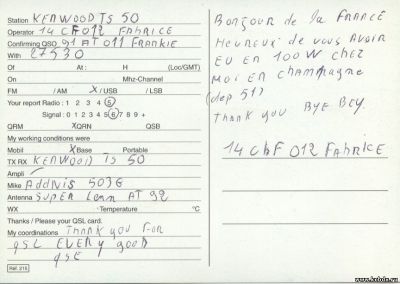 Station KENWOOD TS 50
Operator 14 CBF 012 FABRICE
Confirming QSO 91 AT 011 FRANKIE
With 27530
Of At : H (Loc/GMT)
On Mhz-Channel
FM / AM / X/USB / LSB
Your report Radio : 1 2 3 4 5
Signal : 0 1 2 3 4 5 6 7 8 9 +
QRM XQRN QSB
My working conditions were
Mobil XBase Portable
TX RX KENWOOD TS 50
Ampli
Mike ADDNIS 503G
Antenna SUPER AT 92
WX Temperature °C
Thanks / Please your QSL card.
My coordinations Thank you FOR
QSL EVERY good
QSL
Réf. 215
Bonjour de la FRANCE
Heureux de vous Avoir
EU EN 100 W chez
Moi EN champagne
(dep 51)
Thank you BYE BEY
14 CbF 012 FAbRICE
www.kabda.ru